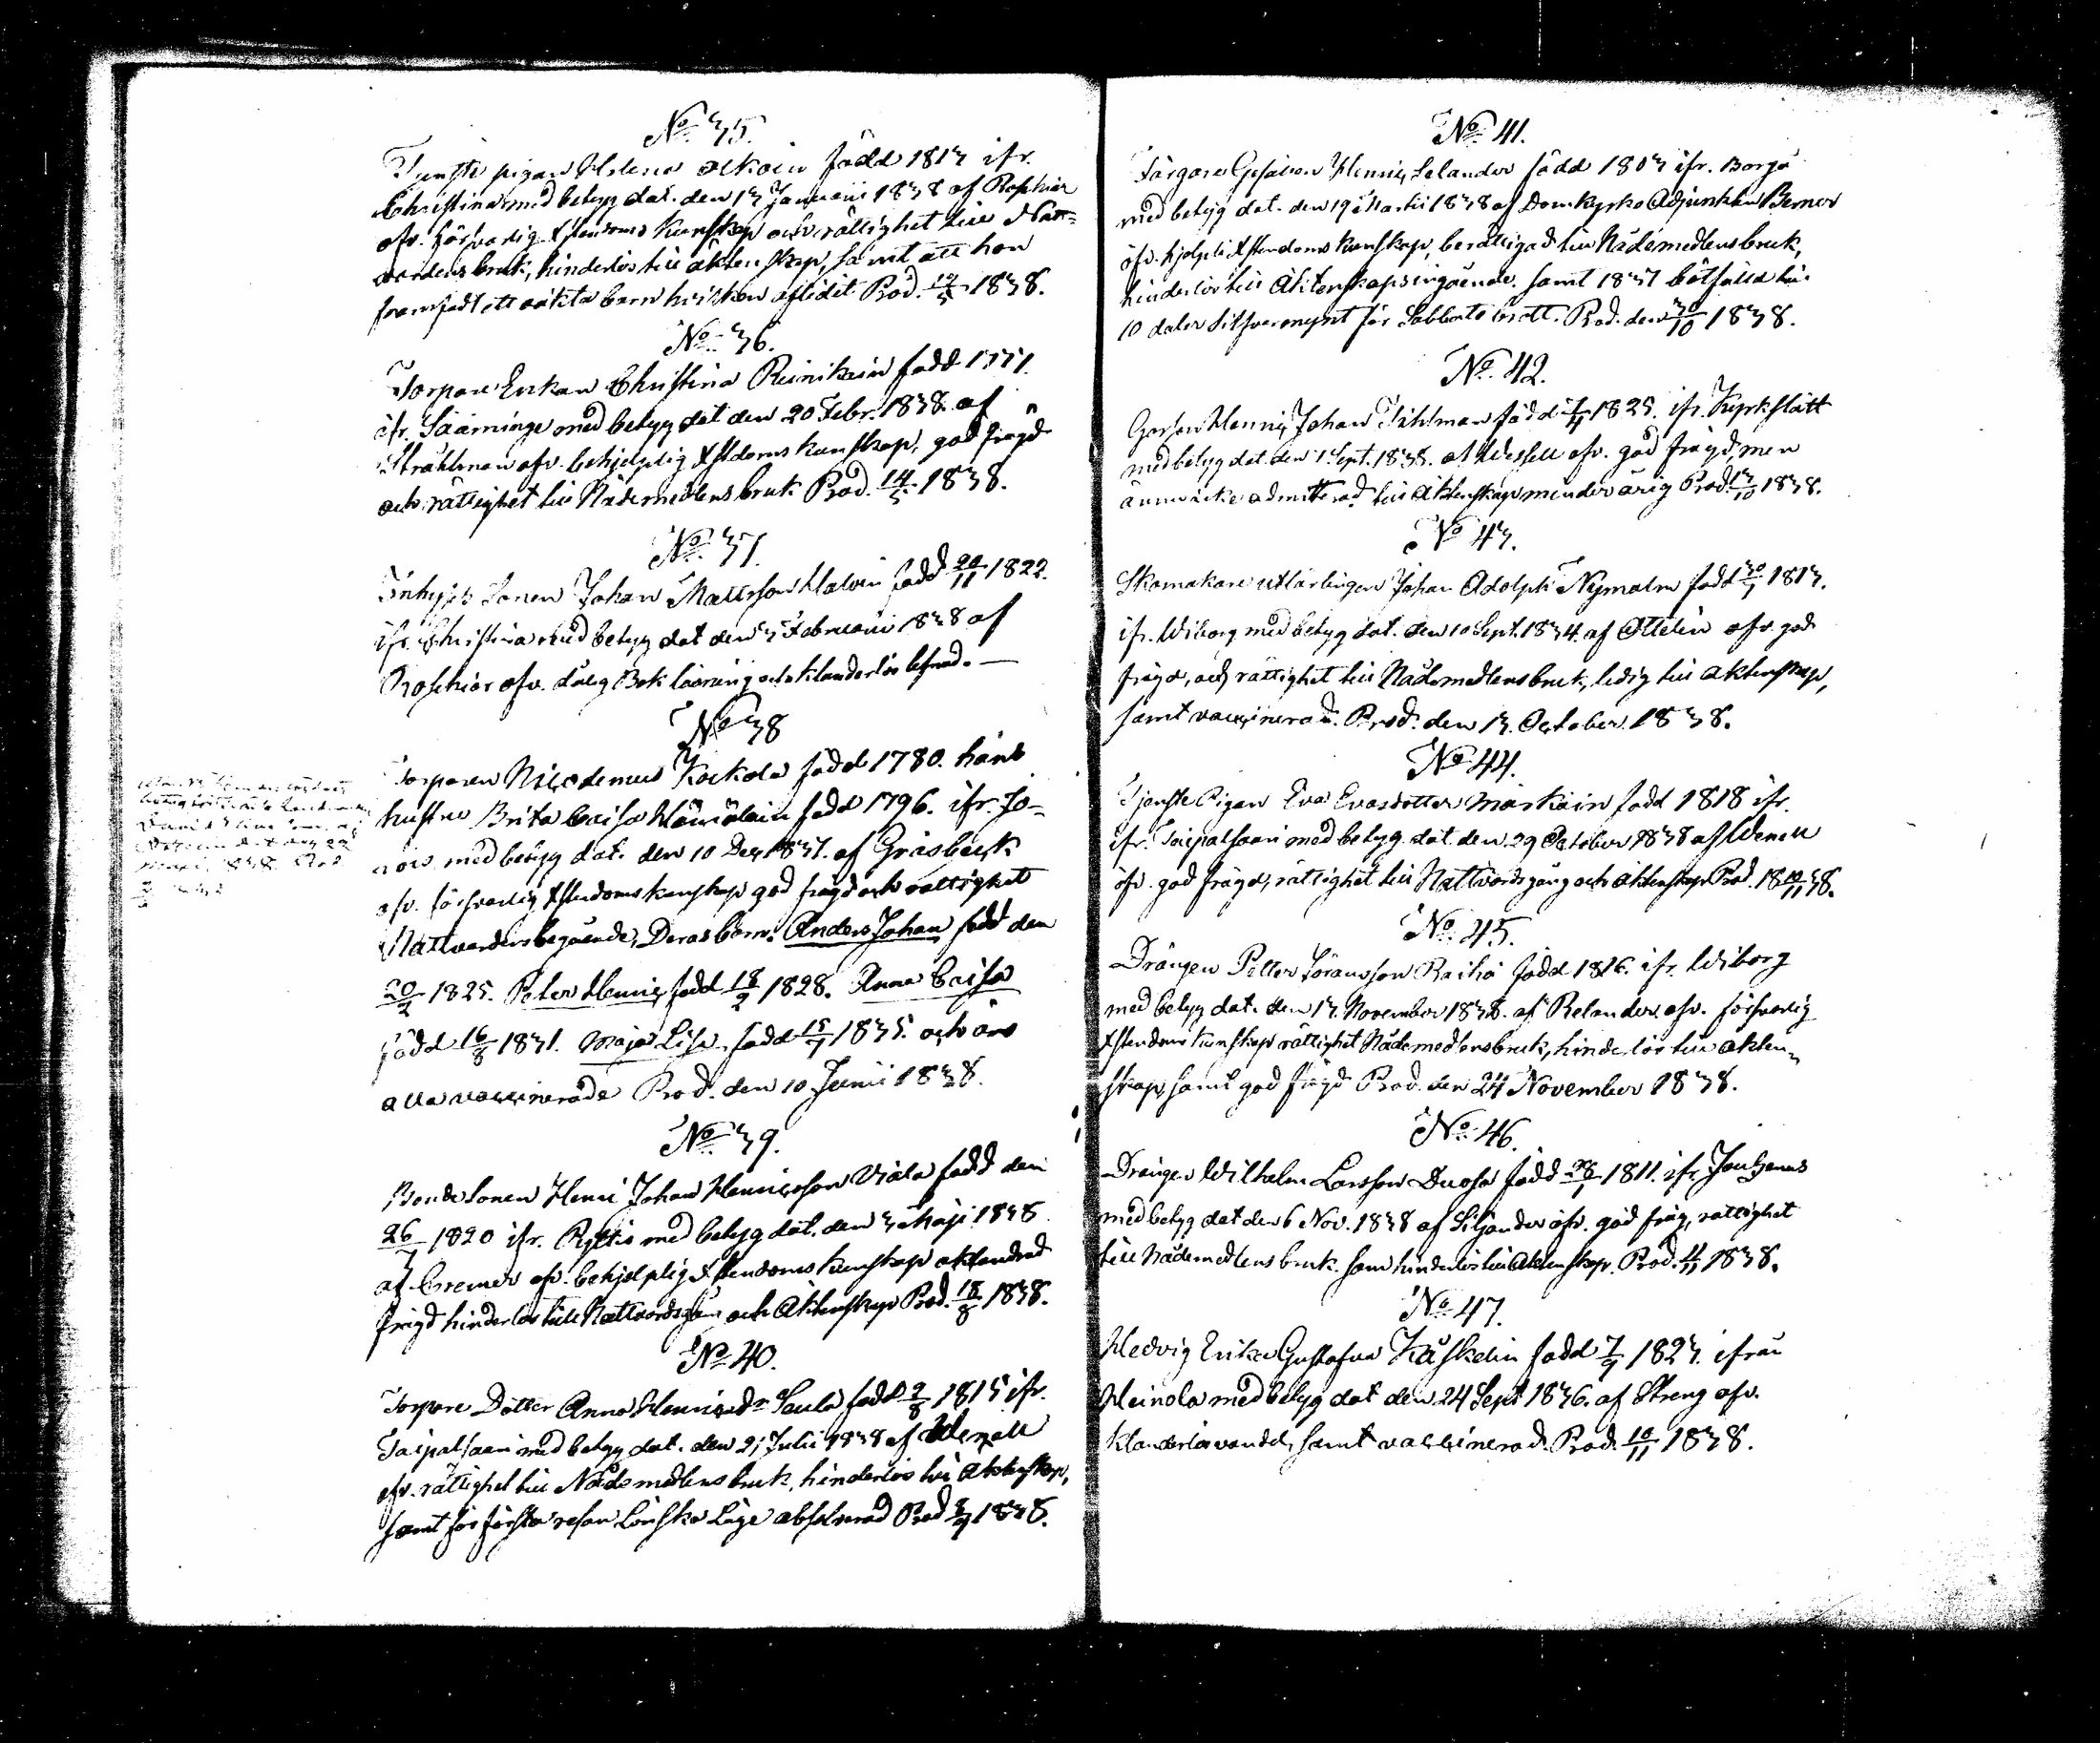 No 35.
Tjenste pigan Helena Alkoin född 1813 ifr.
Christina med betyg dat. den 13 Januarii 1838 af Roschier
ofv. försvarlig Xstendoms kunskap och rättighet till Natt-
vardens bruk, hinderlös till äktenskap, samt att hon
framfödt ett oäkta barn hvilken aflidit Prod. 12/5 1838.
No 36.
Torpare Enkan Christina Reinikain född 1771.
ifr. Sääminge med betyg dat den 20 Febr. 1838 af
Stråhlman ofv. behjelplig Xstdoms kunskap, god frägd
och rättighet till Nådemedlens bruk Prod. 14/5 1838.
No 37.
Inhyses Sonen Johan Mattsson Halvin född 20/11 1822.
ifr. Christina med betyg dat den 3 Februarii 1838 af
Roschier ofv. dålig Bok läsning och klanderlös lefnad. —
No 38
Torparen Nicodemus Kockola född 1780. hans
hustru Brita Caisa Hämäläin född 1796. ifr. Jo-
rois med betyg dat. den 10 Dec. 1837. af Gråsbeck
ofv. försvarlig Xstendoms kunskap god frägd och rättighet
Nattvardens begående, Deras barn. Anders Johan född den
20/2 1825. Peter Henric född 18/2 1828. Anna Caisa
född 16/8 1831. Maja Lisa född 15/7 1835. och äro
alla vaccinerade Prod. den 10 Junii 1838.
No 39.
Bonde Sonen Henric Johan Henricsson Viala född den
26/7 1820 ifr. Pyttis med betyg dat. den 3 Maji 1838
af Cremer ofv. behjelplig Xstendoms kunskap oklandrad
frägd hinderlös till Nattvardsgån och Äktenskap Prod. 18/8 1838.
No 40.
Torpare Dotter Anna Henricsdr Saula född 2/8 1815 ifr.
Taipalsaari med betyg dat. den 21 Julii 1838 af Wenell
ofv. rättighet till Nådemedlens bruk, hinderlös till Äktenskap,
samt för första resan Lönska Läge absolverad Prod 8/9 1838.
No 41.
Färgare Gesällen Henric Selander född 1803 ifr. Borgå
med betyg dat. den 19 Martii 1838 af Domkyrko Adjunkten Berner
ofv. hjelplig Xstendoms kunskap, berättigad till Nådemedlens bruk,
hinderlös till Äktenskaps ingående. samt 1837 bötfälld till
10 daler Silfvermynt för Sabbats brott. Prod. den 30/10 1838.
No 42.
Gossen Henric Johan Tihlman född 4/4 1825. ifr. Kyrkslätt
med betyg dat. den 1 Sept. 1838. af Wessell ofv. god frägd, men
ännu icke admitterad, till Äktenskap minderårig Prod. 13/10 1838.
No 43.
Skomakare utlärlingen Johan Adolph Nymalm född 30/1 1813.
ifr. Wiborg med betyg dat. den 10 Sept. 1834. af Ottelin ofv. god
frägd, och rättighet till Nådemedlens bruk, ledig till äktenskap,
samt vaccinerad. Prod. den 13 October 1838.
No 44.
Tjenste Pigan Eva Evasdotter Märkäin född 1818 ifr.
ifr. Taipalsaari med betyg dat. den 29 October 1838 af Wenell
ofv. god frägd, rättighet till Nattvardsgång och äktenskap Prod. 18 10/11 38.
No 45.
Drängen Petter Göransson Raihä född 1816. ifr. Wiborg
med betyg dat. den 13 November 1838. af Relander ofv. försvarlig
Xstendoms kunskap rättighet Nådemedlens bruk, hinderlös till äkten-
skap samt god frägd Prod. den 24 November 1838.
No 46.
Drängen Wilhelm Larsson Duosa född 28/1 1811. ifr. Joutzenus
med betyg dat den 6 Nov. 1838 af Siljander ofv. god fräg, rättighet
till Nådemedlens bruk. sam hinderlös till Äktenskap. Prod. 11/11 1838.
No 47.
Hedvig Erika Gustafva Käskelin född 7/9 1823. ifrån
Heinola med betyg dat den 24 Sept 1836. af Streng ofv.
klanderlös vandel, samt vaccinerad. Prod. 10/11 1838.